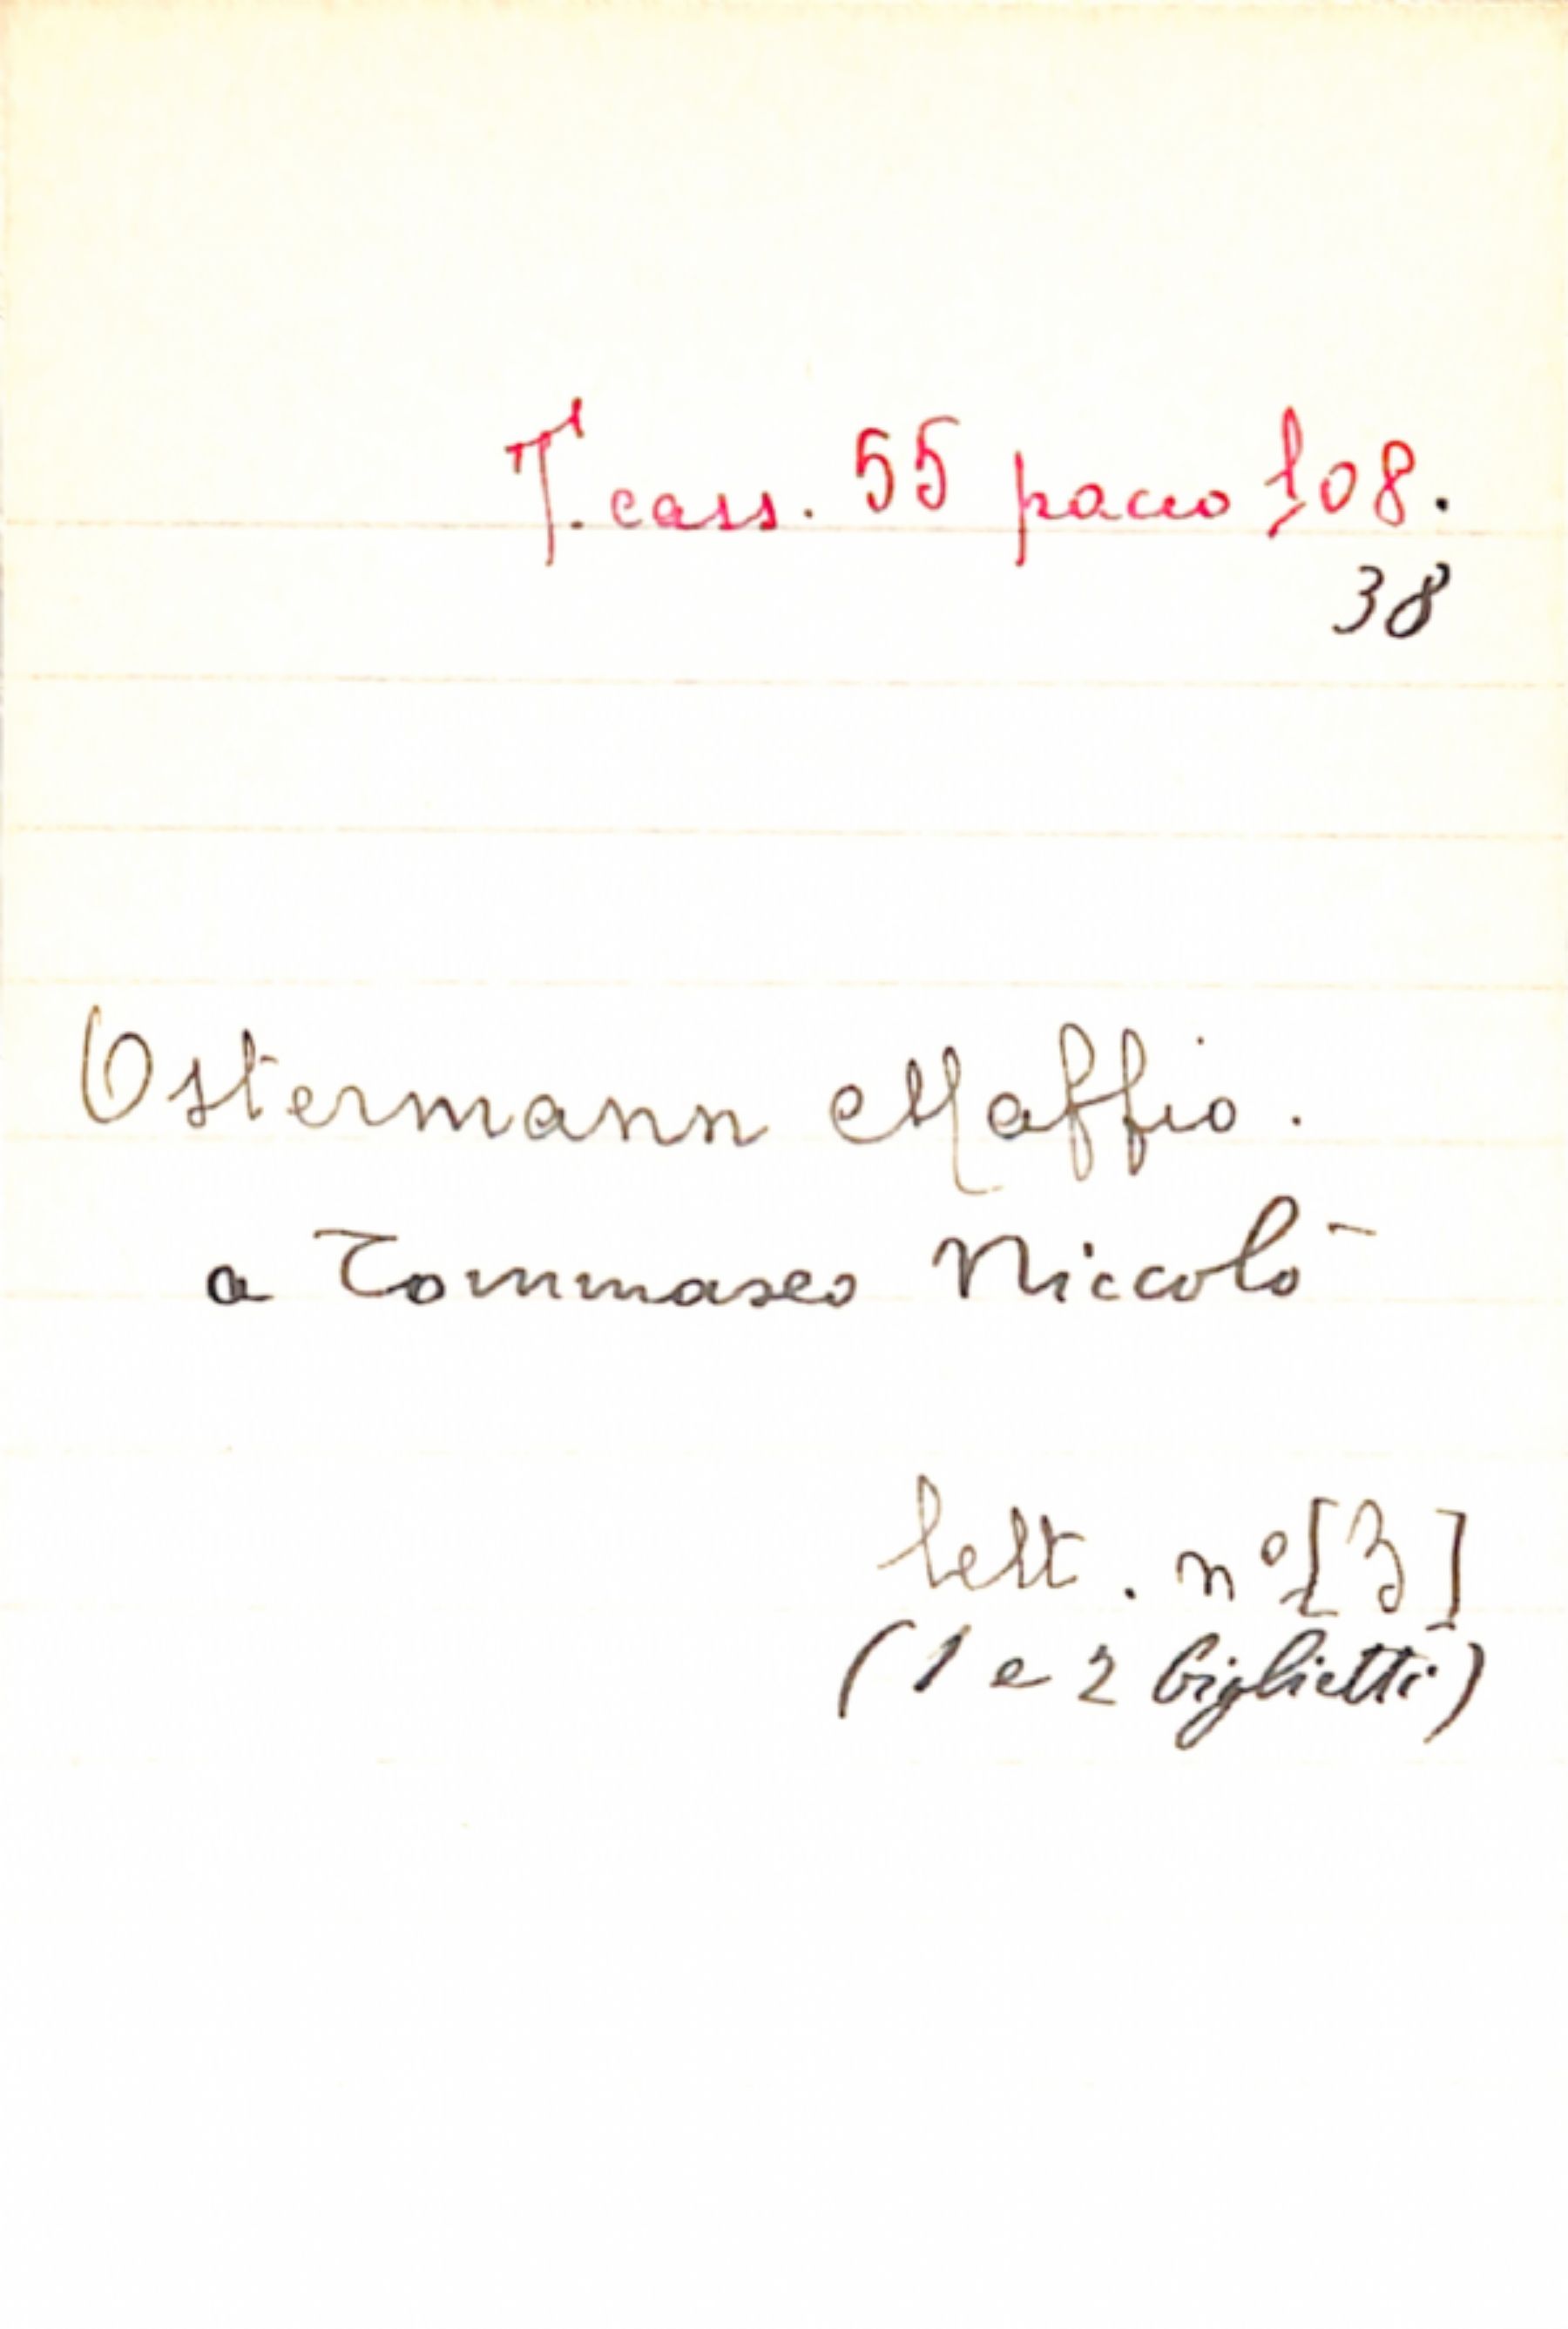 T. cass. 55 pacco 108.
38
Ostermann Maffio.
a Tommaseo Niccolò
lett. nº [3]
(1 e 2 biglietti)